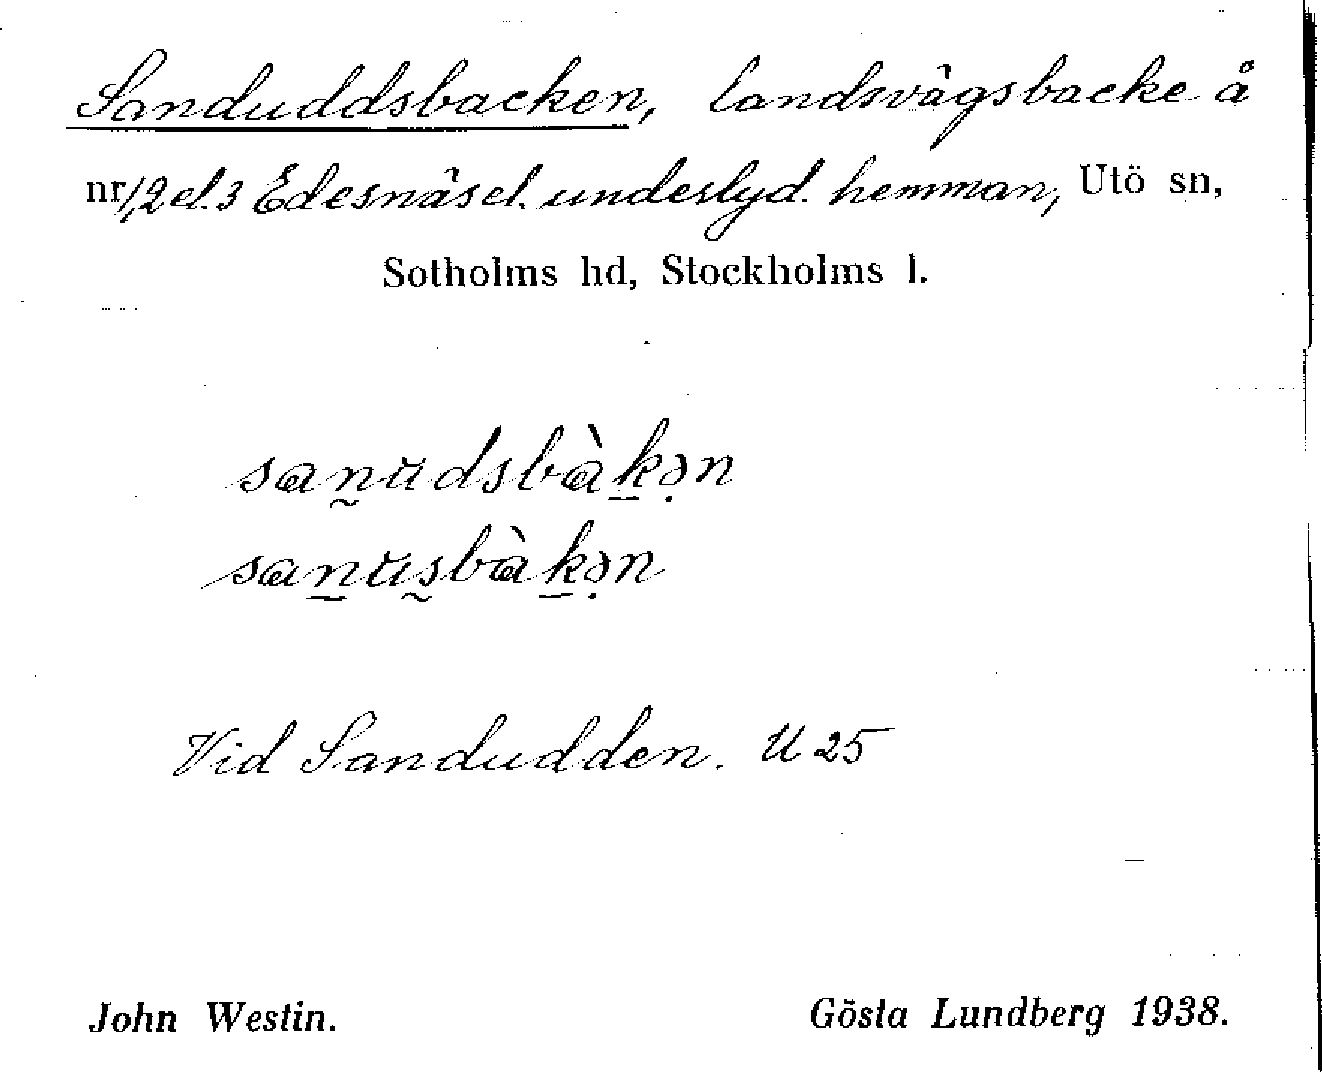 Sanduddsbacken, landsvägsbacke å
nr 1,2 el. 3 Edesnäs el. underlyd. hemman, Utö sn,
Sotholms hd, Stockholms l.
san̰ŭdsbàk̠ə̣n
san̠ŭs̰bàk̠ə̣n
Vid Sandudden. U 25
John Westin.
Gösta Lundberg 1938.